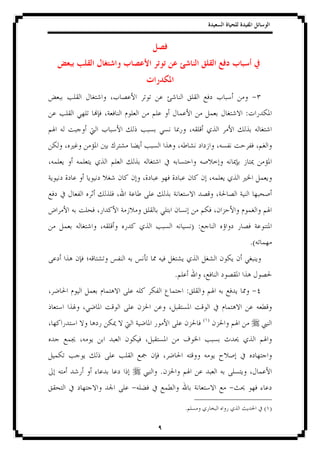 الوسائل المفيدة للحياة السعيدة
فصل
في أسباب دفع القلق الناشئ عن توتر الأعصاب واشتغال القلب ببعض
المكدرات
٣- ومن أسباب دفع القلق الناشئ عن توتر الأعصاب، واشتغال القلب ببعض
المكدرات: الاشتغال بعمل من الأعمال أو علم من العلوم النافعة، فإنها تلهي القلب عن
اشتغاله بذلك الأمر الذي أقلقه، وربما نسي بسبب ذلك الأسباب التي أوجبت له الهم
والغم، ففرحت نفسه، وازداد نشاطه، وهذا السبب أيضا مشترك بين المؤمن وغيره، ولكن
المؤمن يمتاز بإيمانه وإخلاصه واحتسابه في اشتغاله بذلك العلم الذي يتعلمه أو يعلمه،
ويعمل الخير الذي يعلمه، إن كان عبادة فهو عبادة، وإن كان شغلا دنيويا أو عادة دنيوية
أصحبها النية الصالحة، وقصد الاستعانة بذلك على طاعة الله، فلذلك أثره الفعال في دفع
الهم والغموم والأحزان، فكم من إنسان ابتلي بالقلق وملازمة الأكدار، فحلت به الأمراض
المتنوعة فصار دواؤه الناجع: (نسيانه السبب الذي كدره وأقلقه، واشتغاله بعمل من
مهماته).
وينبغي أن يكون الشغل الذي يشتغل فيه مما تأنس به النفس وتشتاقه؛ فإن هذا أدعى
لحصول هذا المقصود النافع، والله أعلم.
٤- ومما يدفع به الهم والقلق: اجتماع الفكر كله على الاهتمام بعمل اليوم الحاضر،
وقطعه عن الاهتمام في الوقت المستقبل، وعن الحزن على الوقت الماضي، ولهذا استعاذ
النبي ﷺ من الهم والحزن (١) فالحزن على الأمور الماضية التي لا يمكن ردها ولا استدراكها،
والهم الذي يحدث بسبب الخوف من المستقبل، فيكون العبد ابن يومه، يجمع جده
واجتهاده في إصلاح يومه ووقته الحاضر، فإن جمع القلب على ذلك يوجب تكميل
الأعمال، ويتسلى به العبد عن الهم والحزن. والنبي ﷺ إذا دعا بدعاء أو أرشد أمته إلى
دعاء فهو يحث- مع الاستعانة بالله والطمع في فضله- على الجد والاجتهاد في التحقق
(١) في الحديث الذي رواه البخاري ومسلم.
٩